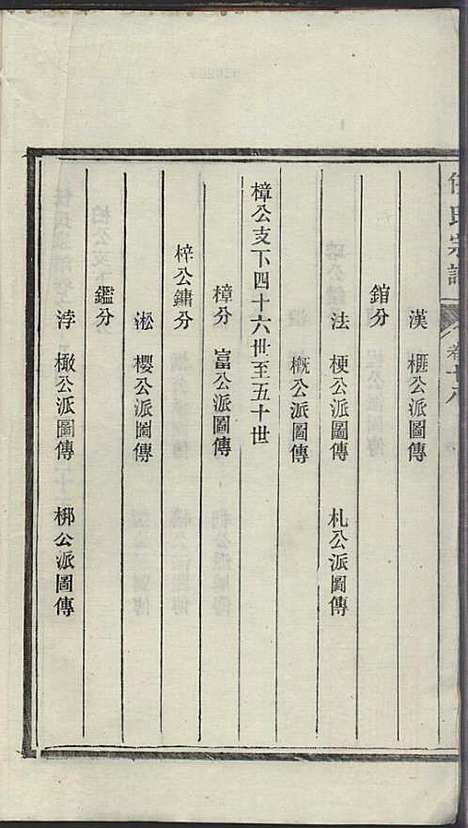 氏宗譜 卷十八
漢 榧公派圖傳
錧分
法 梗公派圖傳 札公派圖傳
概公派圖傳
樟公支下四十六世至五十世
樟分 富公派圖傳
梓公鏞分
淞 櫻公派圖傳
鑑分
浡 橄公派圖傳 梆公派圖傳